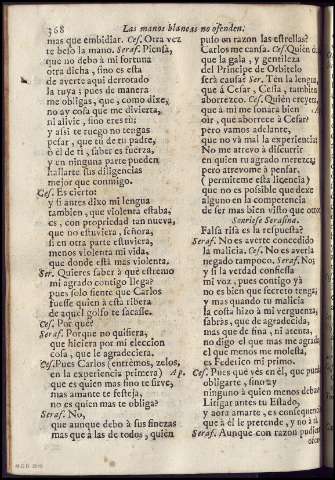 368 Las manos blancas no ofenden.
mas que embidiar. Ces. Otra vez
te beso la mano. Seraf. Piensa,
que no debo à mi fortuna
otra dicha, sino es esta
de averte aqui derrotado
la tuya: pues de manera
me obligas, que, como dixe,
no ay cosa que me divierta,
ni alivie, sino eres tù;
y assi te ruego no tengas
pesar, que tù de tu padre,
ò èl de ti, saber es fuerza,
y en ninguna parte pueden
hallarte sus diligencias
mejor que conmigo.
Ces. Es cierto:
y si antes dixo mi lengua
tambien, que violenta estaba,
es, con propriedad tan nueva,
que no estuviera, señora,
si en otra parte estuviera,
menos violenta mi vida,
que donde està mas violenta.
Ser. Quieres saber à què estremo
mi agrado contigo llega?
pues solo siente que Carlos
fuesse quien à esta ribera
de aquel golfo te sacasse.
Ces. Por què?
Seraf. Porque no quisiera,
que hiciera por mi eleccion
cosa, que le agradeciera.
Ces. Pues Carlos (entrèmos, zelos,
en la experiencia primera) Ap.
que es quien mas fino te sirve,
mas amante te festeja,
no es quien mas te obliga?
Seraf. No,
que aunque debo à sus finezas
mas que à las de todos, quien
puso en razon las estrellas?
Carlos me cansa. Ces. Quien
que la gala, y gentileza
del Principe de Orbitelo
serà causa? Ser. Ten la lengua,
que à Cesar, Celia, tambien
aborrezco. Ces. Quièn creyera,
que à mi me sonàra bien
oìr, que aborrece à Cesar?
pero vamos adelante,
que no và mal la experiencia:
No me atrevo à discurrir
en quien tu agrado merezca;
pero atrevome à pensar,
(permiteme esta licencia)
que no es possible que dexe
alguno en la competencia
de ser mas bien visto que otro.
Sonriese Serafina.
Falsa risa es la respuesta?
Seraf. No es averte concedido
la malicia. Ces. No es averla
negado tampoco. Seraf. No;
y si la verdad confiessa
mi voz, pues contigo yà
no es bien que secreto tenga,
y mas quando tu malicia
la costa hizo à mi verguenza,
sabràs, que de agradecida,
mas que de fina, ni atenta,
no digo el que mas me agrada,
el que menos me molesta,
es Federico mi primo.
Ces. Pues què vès en èl, que pueda
obligarte, sino
ninguno à quien menos debas?
Litigar antes tu Estado,
y aora amarte, es consequencia
que à èl le pretende, y no à ti.
Seraf. Aunque con razon pudiera